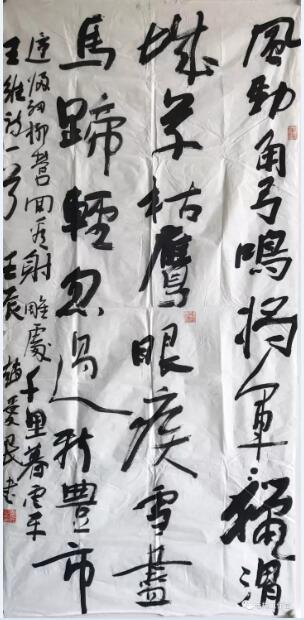 風勁角弓鳴将軍獵渭
城草枯鷹眼疾雪盡
馬蹄輕忽過新豐市
還歸細柳營回看射雕處千里暮雲平
王維詩一首 壬辰 趙愛書